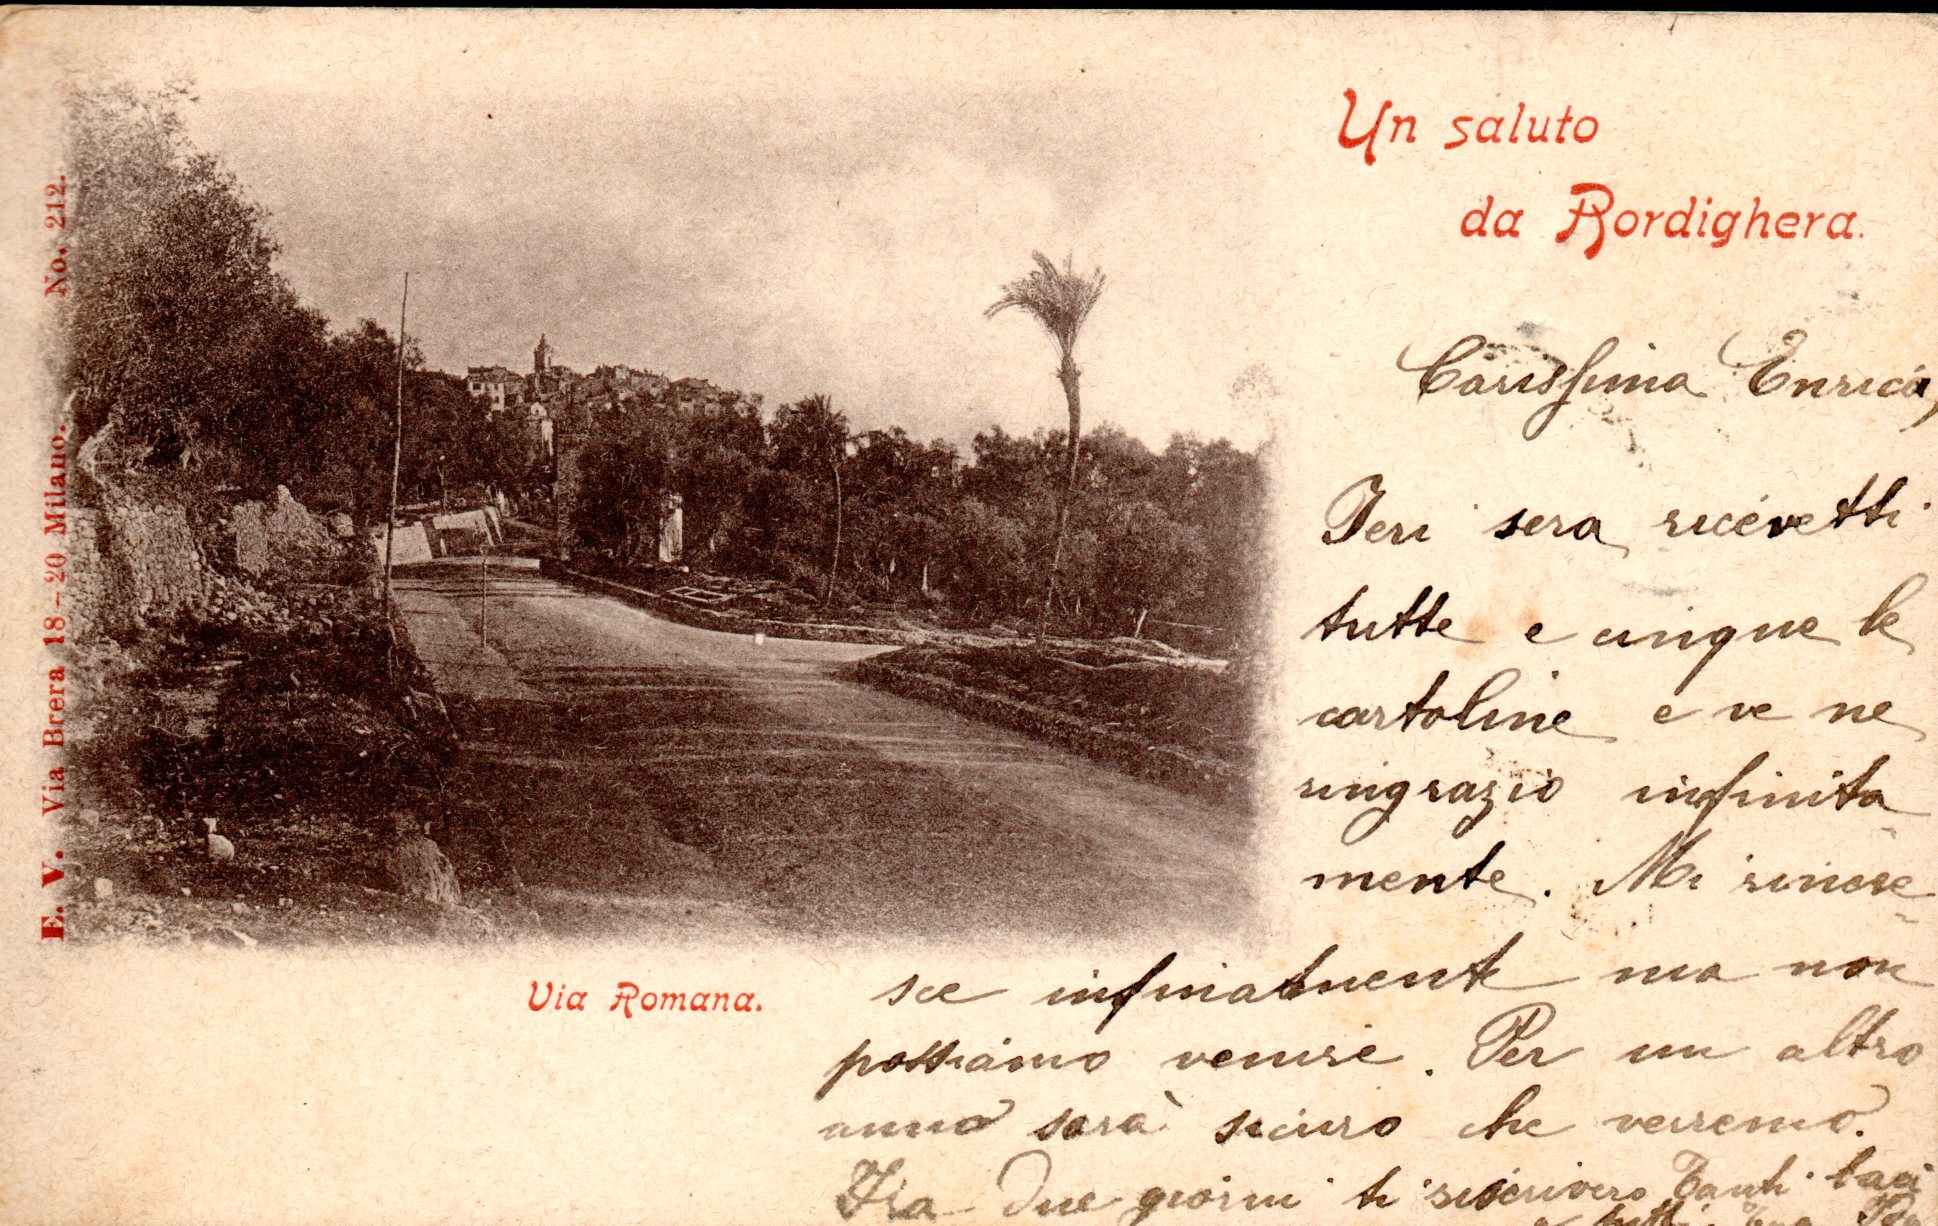 Un saluto
da Bordighera.
E. V. Via Brera 18-20 Milano. No. 212.
Via Romana.
Carissima Enrica,
Ieri sera ricevetti
tutte e cinque le
cartoline e ve ne
ringrazio infinita
mente. Mi rincre
sce infinatmente ma non
possiamo venire. Per un altro
anno sarà sicuro che verremo.
Fra due giorni ti riscriverò Tanti baci
a tutti